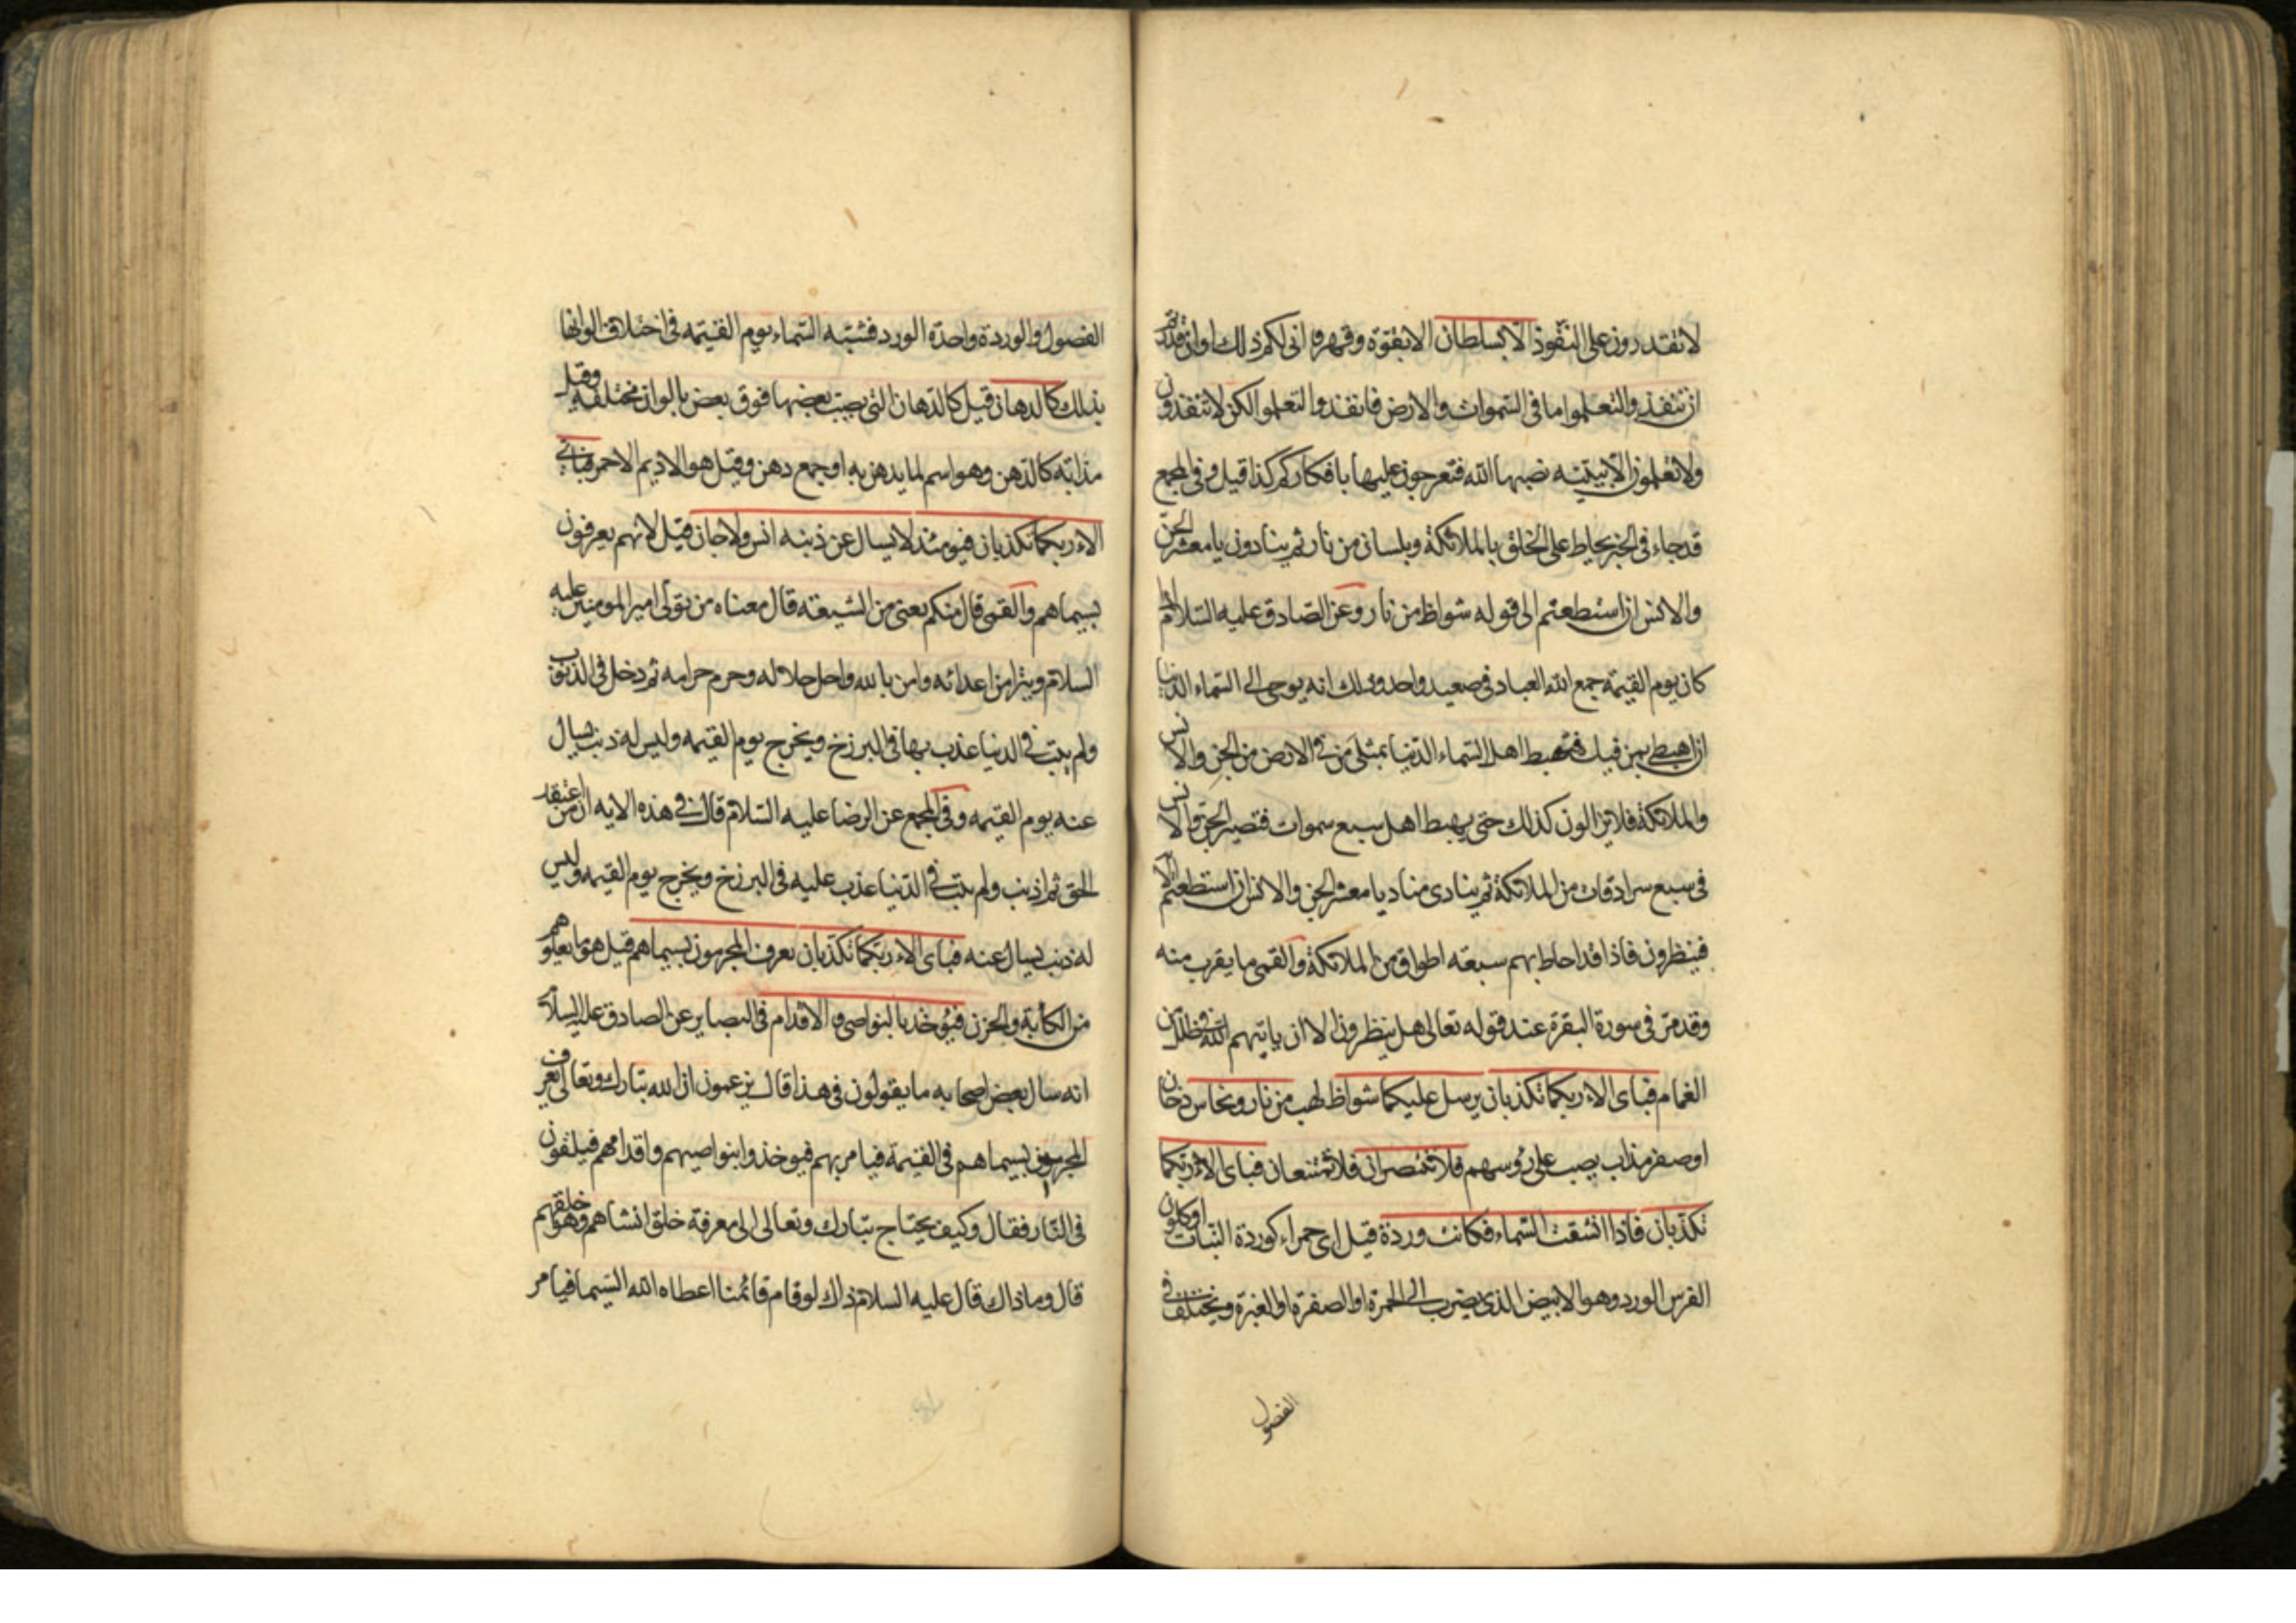 لا تقدرون على النفوذ الا بسلطان الا بقوة وقهر وانى لكم ذلك اوان قدرتم
ان تنفذوا لتعلموا ما فى السموات والارض فانفذوا لتعلموا لكن لا تنفذون
ولا تعلمون الا ببينه نصبها الله فتعرجون عليها بافكاركم كذا قيل وفى المجمع
قد جاء فى الخبر يحاط على الخلق بالملائكة وبلسان من نار ثم ينادون يا معشر الجن
والانس ان استطعتم الى قوله شواظ من نار وعن الصادق عليه السلام اذا
كان يوم القيمة جمع الله العباد فى صعيد واحد وذلك انه يوحى الى السماء الدنيا
ان اهبطى بمن فيك فتهبط اهل السماء الدنيا بمثلى من فى الارض من الجن والانس
والملائكة فلا يزالون كذلك حتى يهبط اهل سبع سموات فتصير الجن والانس
فى سبع سرادقات من الملائكة ثم ينادى مناد يا معشر الجن والانس ان استطعتم الاية
فينظرون فاذا قد احاط بهم سبعه اطواق من الملائكة والقمى ما يقرب منه
وقد مر فى سورة البقرة عند قوله تعالى هل ينظرون الا ان ياتيهم الله فى ظلل من
الغمام فباى الاء ربكما تكذبان يرسل عليكما شواظ لهب من نار ونحاس دخان
او صفر مذاب يصب على رؤسهم فلا تنتصران فلا تمتنعان فباى الاء ربكما
تكذبان فاذا انشقت السماء فكانت وردة قيل اى حمراء كوردة النبات او كلون
الفرس الورد وهو الابيض الذى يضرب الى الحمرة او الصفرة او الغبرة ويختلف فى
الفصول
الفصول والوردة واحدة الورد فشبه السماء يوم القيمه فى اختلاف الوانها
بذلك كالدهان قيل كالدهان التى يصب بعضها فوق بعض بالوان مختلفه وقيل
مذابه كالدهن وهو اسم لما يدهن به او جمع دهن وقيل هو الاديم الاحمر فباى
الاء ربكما تكذبان فيومئذ لا يسال عن ذنبه انس ولا جان قيل لانهم يعرفون
بسيماهم والقمى قال منكم يعنى من الشيعه قال معناه من تولى امير المومنين عليه
السلام وتبرا من اعدائه وامن بالله واحل حلاله وحرم حرامه ثم دخل فى الذنوب
ولم يتب فى الدنيا عذب بها فى البرزخ ويخرج يوم القيمه وليس له ذنب يسال
عنه يوم القيمه وفى المجمع عن الرضا عليه السلام قال فى هذه الايه ان من اعتقد
الحق ثم اذنب ولم يتب فى الدنيا عذب عليه فى البرزخ ويخرج يوم القيمه وليس
له ذنب يسال عنه فباى الاء ربكما تكذبان يعرف المجرمون بسيماهم قيل هو ما يعلوهم
من الكابة والحزن فيؤخذ بالنواصى والاقدام فى البصاير عن الصادق عليه السلام
انه سال بعض اصحابه ما يقولون فى هذا قال يزعمون ان الله تبارك وتعالى يعرف
المجرمون بسيماهم فى القيمة فيامر بهم فيوخذ وابنواصيهم واقدامهم فيلقون
فى النار فقال وكيف يحتاج تبارك وتعالى الى معرفة خلق انشاهم وهو خلقهم
قال وما ذاك قال عليه السلام ذاك لو قام قائمنا اعطاه الله السيما فيامر